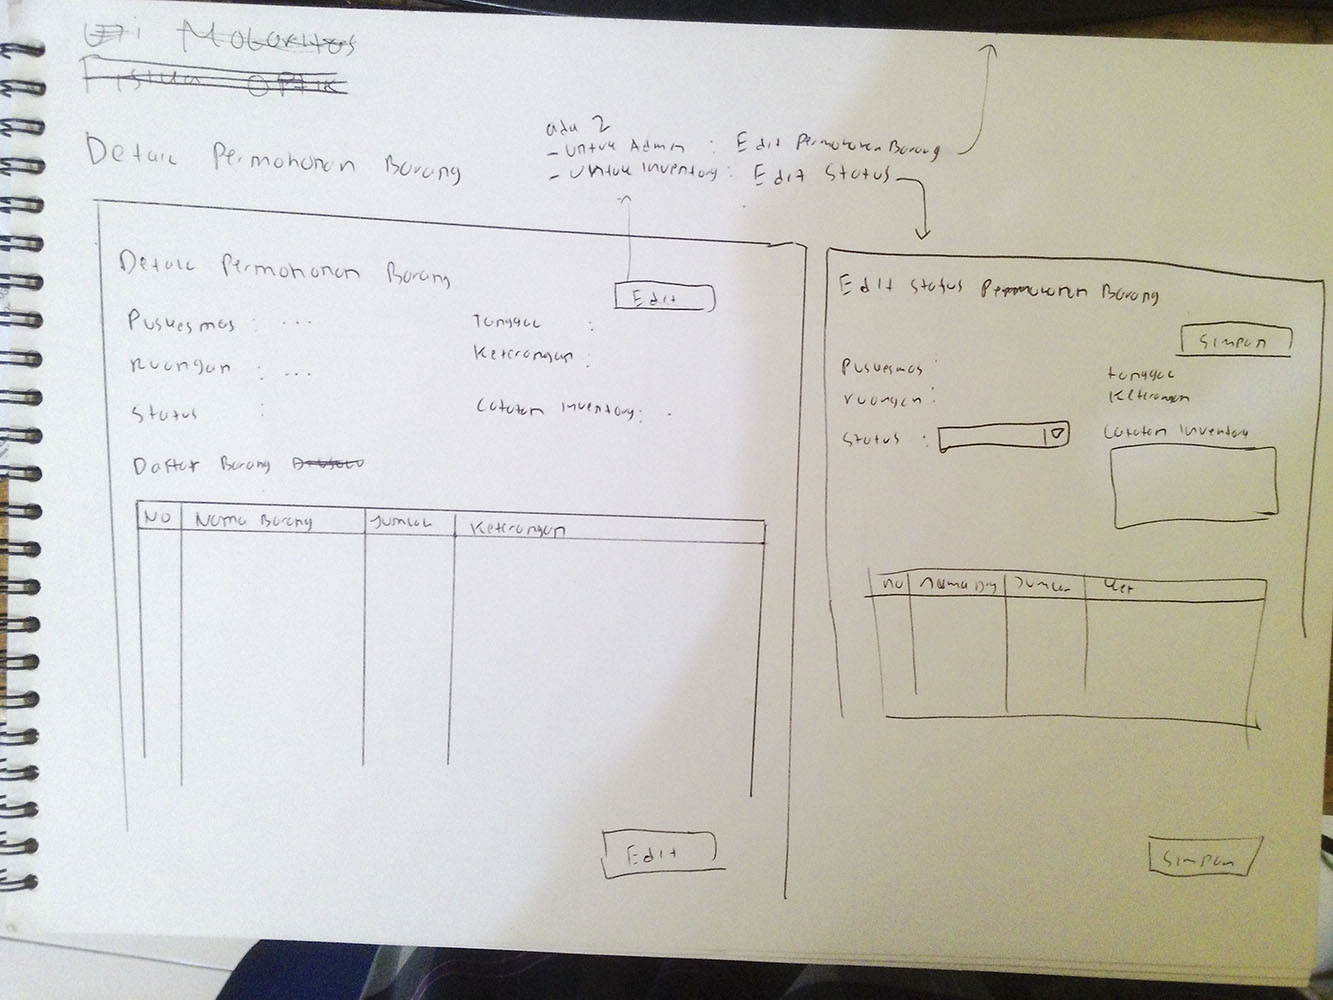 Uji Moluritas
Fisika OPtik
Detail Permohonan Barang
ada 2
- untuk Admin : Edit Permohonan Barang
- untuk Inventory : Edit Status
Detail Permohonan Barang
Edit
Puskesmas : ...
Tanggal :
Keterangan :
ruangan : ...
Status :
Catatan Inventory : .
Daftar Barang
No Nama Barang Jumlah Keterangan
Edit
Edit Status Permohonan Barang
Simpan
Puskesmas :
tanggal
ruangan :
Keterangan
Status :
Catatan Inventory
No Nama Brg Jumlah Ket
Simpan